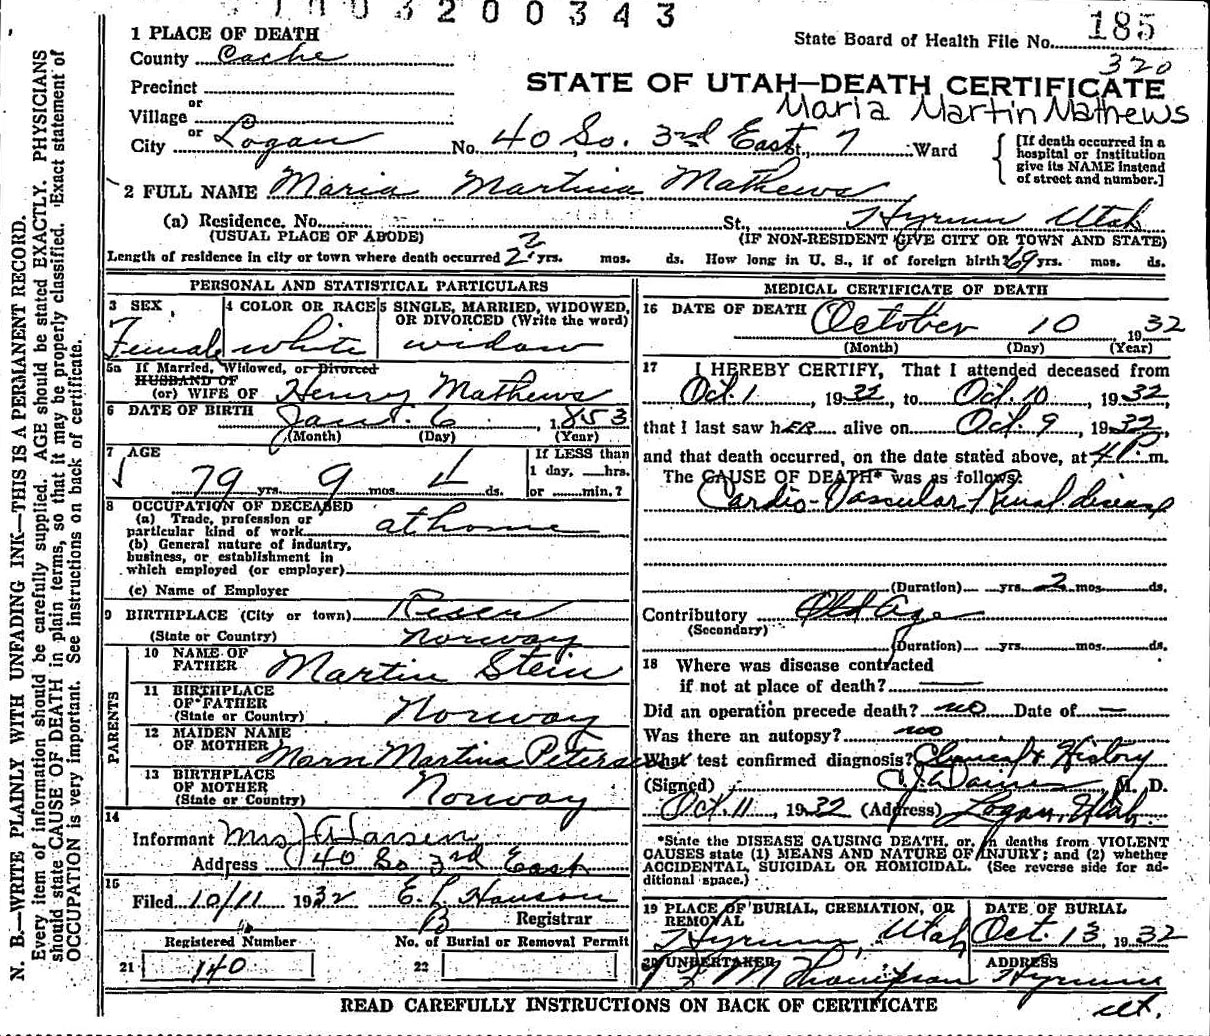 3200343
185
1 PLACE OF DEATH
State Board of Health File No.
County Cache
320
Precinct
STATE OF UTAH—DEATH CERTIFICATE
or
Maria Martin Mathews
Village
or
City Logan No. 40 So. 3rd East St., 7 Ward
[If death occurred in a
hospital or institution
give its NAME instead
of street and number.]
2 FULL NAME Maria Martina Mathews
(a) Residence, No. St., Hyrum Utah
(USUAL PLACE OF ABODE) (IF NON-RESIDENT GIVE CITY OR TOWN AND STATE)
Length of residence in city or town where death occurred yrs. mos. ds. How long in U. S., if of foreign birth? 69 yrs. mos. ds.
PERSONAL AND STATISTICAL PARTICULARS
3 SEX
Female
4 COLOR OR RACE
white
5 SINGLE, MARRIED, WIDOWED,
OR DIVORCED (Write the word)
widow
5a If Married, Widowed, or Divorced
HUSBAND OF
(or) WIFE OF Henry Mathews
6 DATE OF BIRTH Jan. 6, 1853
(Month) (Day) (Year)
7 AGE
79 yrs. 9 mos. 4 ds.
If LESS than
1 day, hrs.
or min.?
8 OCCUPATION OF DECEASED
(a) Trade, profession or
particular kind of work at home
(b) General nature of industry,
business, or establishment in
which employed (or employer)
(c) Name of Employer
9 BIRTHPLACE (City or town)
(State or Country) Norway
PARENTS
10 NAME OF
FATHER Martin Stein
11 BIRTHPLACE
OF FATHER
(State or Country) Norway
12 MAIDEN NAME
OF MOTHER Martina
13 BIRTHPLACE
OF MOTHER
(State or Country) Norway
14
Informant Mrs
Address 40 So 3rd East
15
Filed 10/11 1932 E. L. Hanson
Registrar
B
Registered Number
No. of Burial or Removal Permit
21 140
22
MEDICAL CERTIFICATE OF DEATH
16 DATE OF DEATH October 10 1932
(Month) (Day) (Year)
17 I HEREBY CERTIFY, That I attended deceased from
Oct. 1, 1932, to Oct. 10, 1932,
that I last saw hER alive on Oct. 9, 1932,
and that death occurred, on the date stated above, at 4 P. m.
The CAUSE OF DEATH* was as follows:
Cardio-Vascular-Renal disease
(Duration) yrs. 2 mos. ds.
Contributory Old Age
(Secondary)
(Duration) yrs. mos. ds.
18 Where was disease contracted
if not at place of death?
Did an operation precede death? no Date of —
Was there an autopsy? no
What test confirmed diagnosis? Clinical & History
(Signed) Daines, M. D.
Oct. 11, 1932 (Address) Logan, Utah.
*State the DISEASE CAUSING DEATH, or, in deaths from VIOLENT
CAUSES state (1) MEANS AND NATURE OF INJURY; and (2) whether
ACCIDENTAL, SUICIDAL OR HOMICIDAL. (See reverse side for ad-
ditional space.)
19 PLACE OF BURIAL, CREMATION, OR
REMOVAL
Hyrum, Utah
DATE OF BURIAL
Oct. 13, 1932
20 UNDERTAKER
M Thompson
ADDRESS
Hyrum
Ut.
READ CAREFULLY INSTRUCTIONS ON BACK OF CERTIFICATE
N. B.—WRITE PLAINLY WITH UNFADING INK—THIS IS A PERMANENT RECORD.
Every item of information should be carefully supplied. AGE should be stated EXACTLY. PHYSICIANS
should state CAUSE OF DEATH in plain terms, so that it may be properly classified. Exact statement of
OCCUPATION is very important. See instructions on back of certificate.